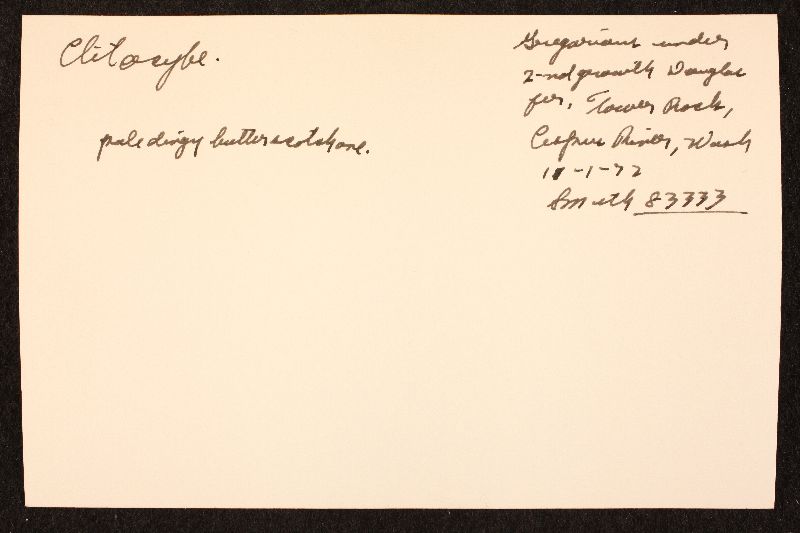 Clitocybe.
pale dingy butterscotch one.
Gregarious under
2-nd growth Douglas
fir, Tower Rock,
Cispus River, Wash
11-1-72
Smith 83333